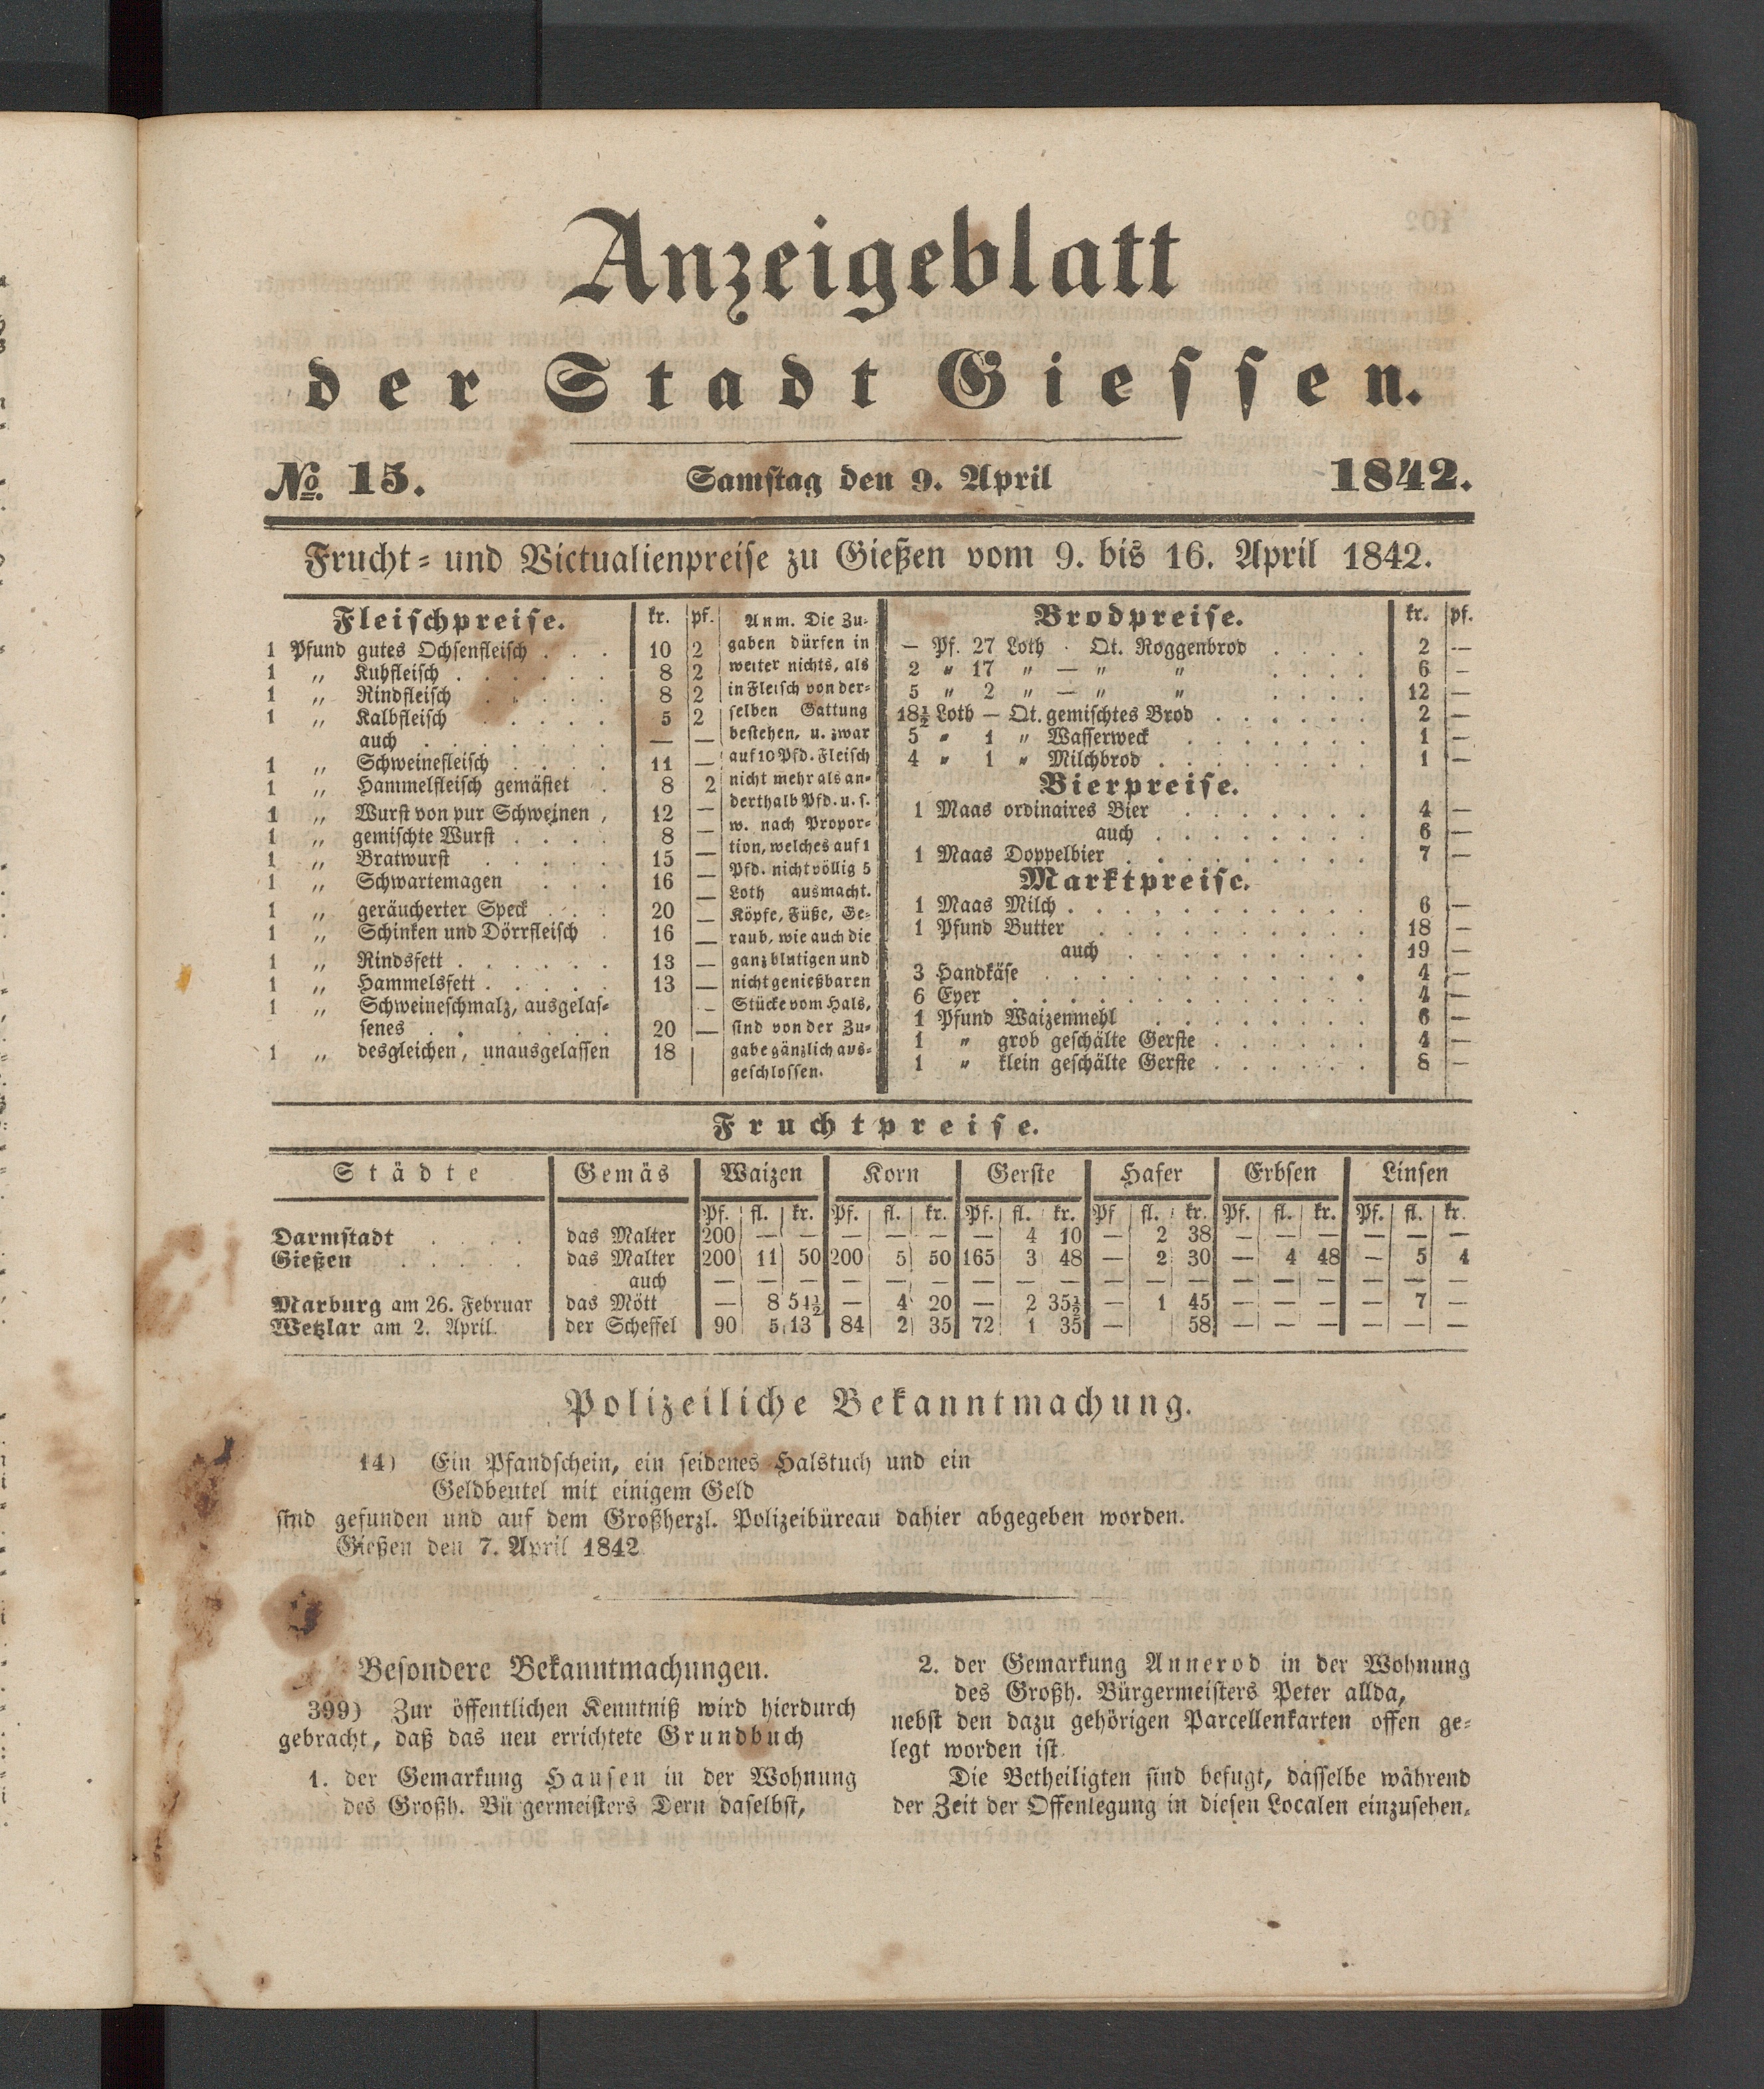 Anzeigeblatt
der Stadt Giessen.
No. 15. Samstag den 9. April 1842.
Frucht- und Victualienpreise zu Gießen vom 9. bis 16. April 1842.
Fleischpreise. kr. pf.
1 Pfund gutes Ochsenfleisch . . . 10 2
1 „ Kuhfleisch . . . . . . 8 2
1 „ Rindfleisch . . . . . 8 2
1 „ Kalbfleisch . . . . . 5 2
auch . . . . . . . — —
1 „ Schweinefleisch . . . . 11 —
1 „ Hammelfleisch gemästet . 8 2
1 „ Wurst von pur Schweinen , 12 —
1 „ gemischte Wurst . . . . 8 —
1 „ Bratwurst . . . . . 15 —
1 „ Schwartemagen . . . 16 —
1 „ geräucherter Speck . . . 20 —
1 „ Schinken und Dörrfleisch . 16 —
1 „ Rindsfett . . . . . . 13 —
1 „ Hammelsfett . . . . . 13 —
1 „ Schweineschmalz, ausgelas-
senes . . . . . . . 20 —
1 „ desgleichen, unausgelassen 18
Anm. Die Zu-
gaben dürfen in
weiter nichts, als
in Fleisch von der-
selben Gattung
bestehen, u. zwar
auf 10 Pfd. Fleisch
nicht mehr als an-
derthalb Pfd. u. s.
w. nach Propor-
tion, welches auf 1
Pfd. nicht völlig 5
Loth ausmacht.
Köpfe, Füße, Ge-
raub, wie auch die
ganz blutigen und
nicht genießbaren
Stücke vom Hals,
sind von der Zu-
gabe gänzlich aus-
geschlossen.
Brodpreise. kr. pf.
— Pf. 27 Loth . Qt. Roggenbrod . . . . 2 —
2 „ 17 „ — „ „ . . . . 6 —
5 „ 2 „ — „ „ . . . . 12 —
18½ Loth — Qt. gemischtes Brod . . . . . . 2 —
5 „ 1 „ Wasserweck . . . . . . . 1 —
4 „ 1 „ Milchbrod . . . . . . . . 1 —
Bierpreise.
1 Maas ordinaires Bier . . . . . . . 4 —
auch . . . . . . . . 6 —
1 Maas Doppelbier . . . . . . . . . 7 —
Marktpreise.
1 Maas Milch . . . . . . . . . . . 6 —
1 Pfund Butter . . . . . . . . . . 18 —
auch . . . . . . . . . 19 —
3 Handkäse . . . . . . . . . . . . 4 —
6 Eyer . . . . . . . . . . . . . 4 —
1 Pfund Waizenmehl . . . . . . . . 6 —
1 „ grob geschälte Gerste . . . . . . 4 —
1 „ klein geschälte Gerste . . . . . . 8 —
Fruchtpreise.
Städte Gemäs Waizen Korn Gerste Hafer Erbsen Linsen
Pf. fl. kr. Pf. fl. kr. Pf. fl. kr. Pf fl. kr. Pf. fl. kr. Pf. fl. kr.
Darmstadt . . . . das Malter 200 — — — — — — 4 10 — 2 38 — — — — — —
Gießen . . . . . das Malter 200 11 50 200 5 50 165 3 48 — 2 30 — 4 48 — 5 4
auch — — — — — — — — — — — — — — — — — —
Marburg am 26. Februar das Mött — 8 54½ — 4 20 — 2 35½ — 1 45 — — — — 7 —
Wetzlar am 2. April. der Scheffel 90 5 13 84 2 35 72 1 35 — 58 — — — — — —
Polizeiliche Bekanntmachung.
14) Ein Pfandschein, ein seidenes Halstuch und ein
Geldbeutel mit einigem Geld
sind gefunden und auf dem Großherzl. Polizeibüreau dahier abgegeben worden.
Gießen den 7. April 1842
Besondere Bekanntmachungen.
399) Zur öffentlichen Kenntniß wird hierdurch
gebracht, daß das neu errichtete Grundbuch
1. der Gemarkung Hausen in der Wohnung
des Großh. Bü germeisters Dern daselbst,
2. der Gemarkung Annerod in der Wohnung
des Großh. Bürgermeisters Peter allda,
nebst den dazu gehörigen Parcellenkarten offen ge-
legt worden ist.
Die Betheiligten sind befugt, dasselbe während
der Zeit der Offenlegung in diesen Localen einzusehen,